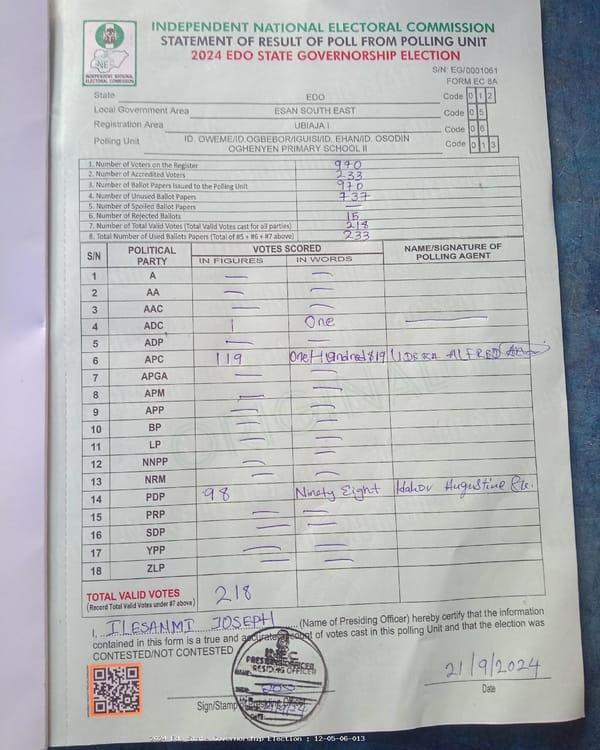 INDEPENDENT NATIONAL ELECTORAL COMMISSION
STATEMENT OF RESULT OF POLL FROM POLLING UNIT
2024 EDO STATE GOVERNORSHIP ELECTION
INEC
INDEPENDENT NATIONAL ELECTORAL COMMISSION
S/N: EG/0001061
FORM EC 8A
State EDO Code 0 1 2
Local Government Area ESAN SOUTH EAST Code 0 5
Registration Area UBIAJA I Code 0 6
Polling Unit ID. OWEME/ID.OGBEBOR/IGUISI/ID. EHAN/ID. OSODIN OGHENYEN PRIMARY SCHOOL II Code 0 1 3
1. Number of Voters on the Register 970
2. Number of Accredited Voters 233
3. Number of Ballot Papers Issued to the Polling Unit 970
4. Number of Unused Ballot Papers 737
5. Number of Spoiled Ballot Papers —
6. Number of Rejected Ballots 15
7. Number of Total Valid Votes (Total Valid Votes cast for all parties) 218
8. Total Number of Used Ballots Papers (Total of #5 + #6 + #7 above) 233
S/N POLITICAL PARTY VOTES SCORED NAME/SIGNATURE OF POLLING AGENT
IN FIGURES IN WORDS
1 A — —
2 AA — —
3 AAC — —
4 ADC 1 One —
5 ADP — —
6 APC 119 One Hundred $ 19 UDEKA ALFRED
7 APGA — —
8 APM — —
9 APP — —
10 BP — —
11 LP — —
12 NNPP — —
13 NRM — —
14 PDP 98 Ninety Eight Idahor Augustine
15 PRP — —
16 SDP — —
17 YPP — —
18 ZLP — —
TOTAL VALID VOTES 218
(Record Total Valid Votes under #7 above)
I, ILESANMI JOSEPH (Name of Presiding Officer) hereby certify that the information
contained in this form is a true and accurate account of votes cast in this polling Unit and that the election was
CONTESTED/NOT CONTESTED
INEC
PRESIDING OFFICER
21/9/2024
Sign/Stamp
Date
2024 Edo State Governorship Election : 12-05-06-013